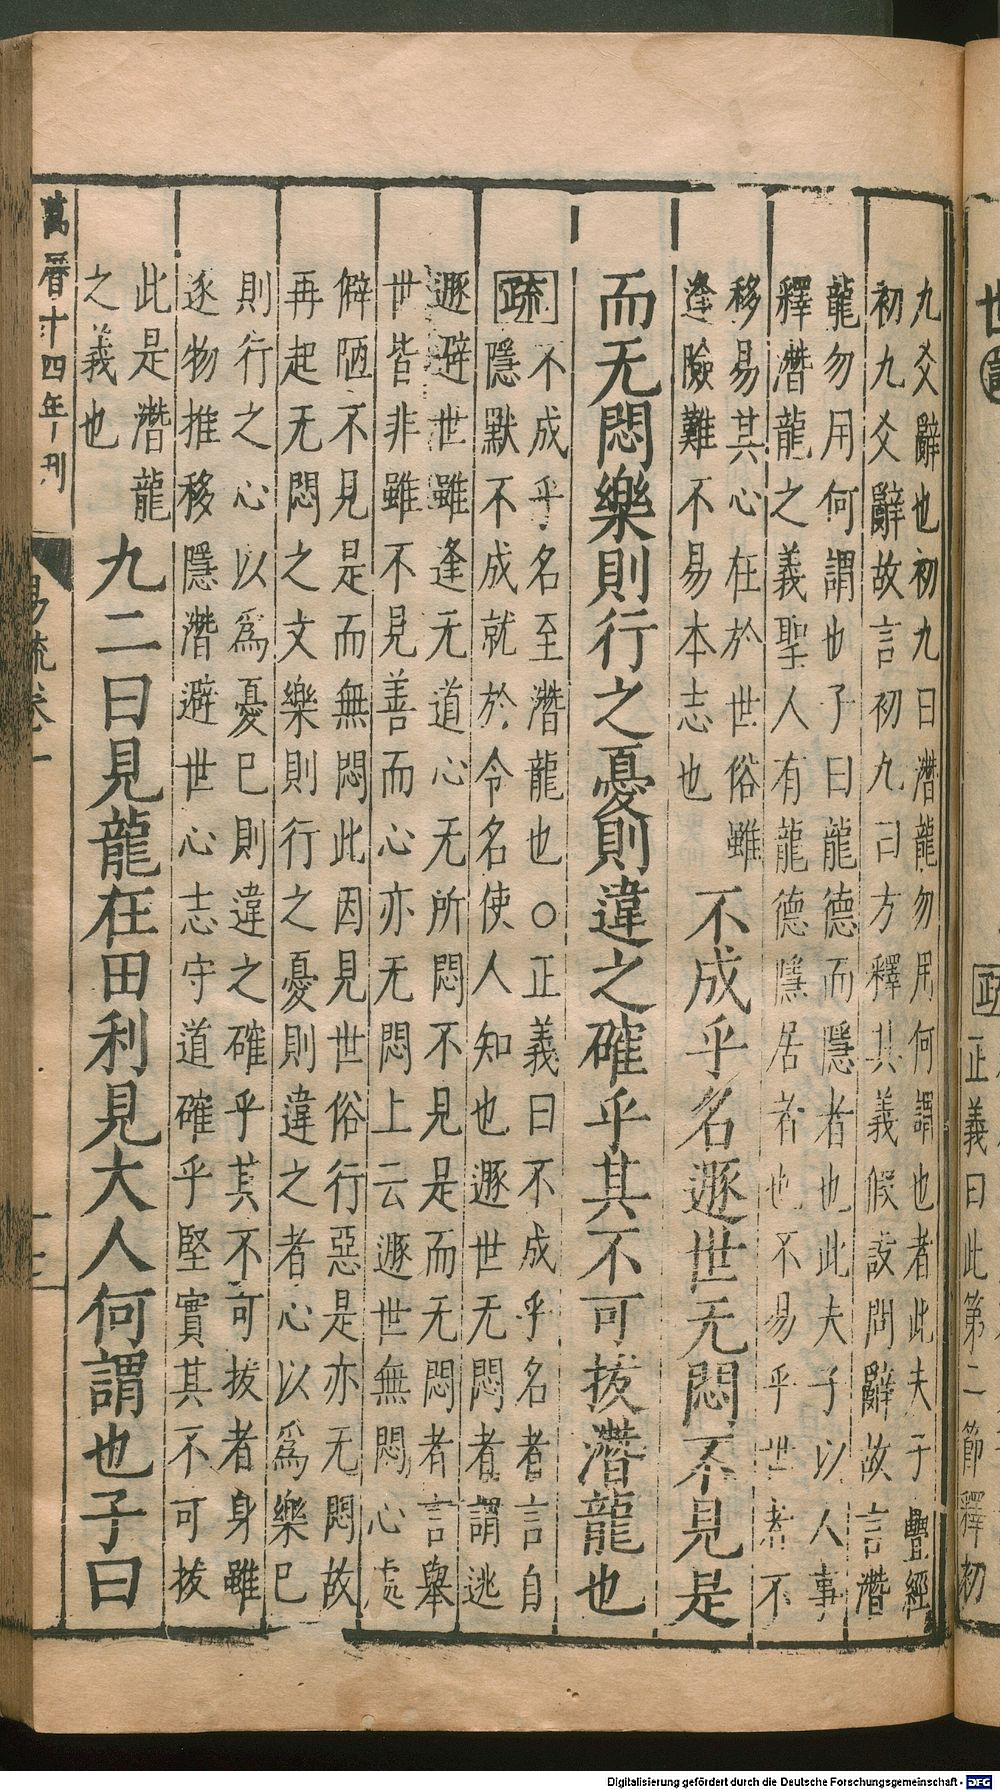 正義曰此第二節釋初
九爻辭也初九曰潛龍勿用何謂也者此夫子疊經
初九爻辭故言初九曰方釋其義假設問辭故言潛
龍勿用何謂也子曰龍德而隱者也此夫子以人事
釋潛龍之義聖人有龍德隱居者也不易乎世者不
移易其心在於世俗雖
逢險難不易本志也
不成乎名遯世无悶不見是
而无悶樂則行之憂則違之確乎其不可拔潛龍也
疏
不成乎名至潛龍也○正義曰不成乎名者言自
隱默不成就於令名使人知也遯世无悶者謂逃
遯避世雖逢无道心无所悶不見是而无悶者言舉
世皆非雖不見善而心亦无悶上云遯世無悶心處
僻陋不見是而無悶此因見世俗行惡是亦无悶故
再起无悶之文樂則行之憂則違之者心以爲樂巳
則行之心以爲憂巳則違之確乎其不可拔者身雖
逐物推移隱潛避世心志守道確乎堅實其不可拔
此是潛龍
之義也
九二曰見龍在田利見大人何謂也子曰
萬曆十四年刊
易疏卷一
Digitalisierung gefördert durch die Deutsche Forschungsgemeinschaft - DFG